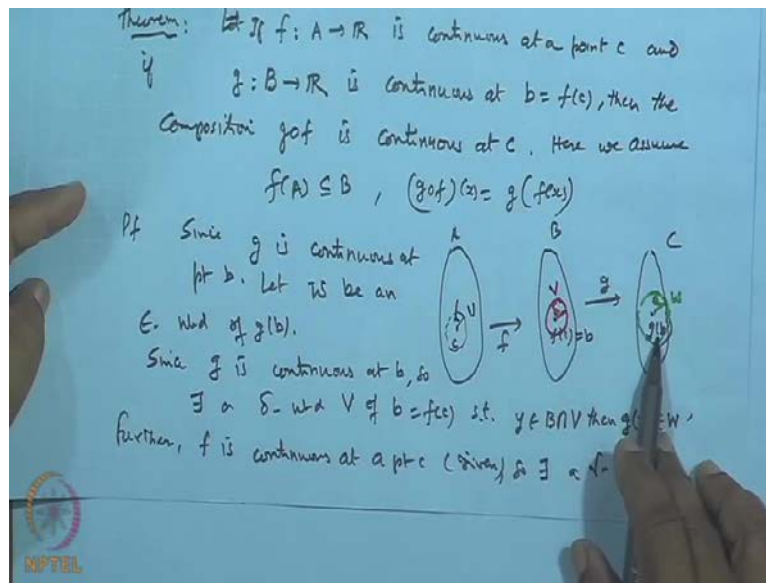 Theorem: Let If f : A → ℝ is continuous at a point c and
if g : B → ℝ is continuous at b = f(c), then the
Composition gof is continuous at c. Here we assume
f(A) ⊆ B , (gof)(x) = g(f(x))
Pf Since g is continuous at
pt b. Let W be an
ε- nbd of g(b).
Since g is continuous at b, so
∃ a δ- nbd V of b = f(c) s.t. y ∈ B∩V then g( ∈ W.
Further, f is continuous at a pt c (given) so ∃ a
A B C
U V W
f g
c f(c) = b g(b)
NPTEL